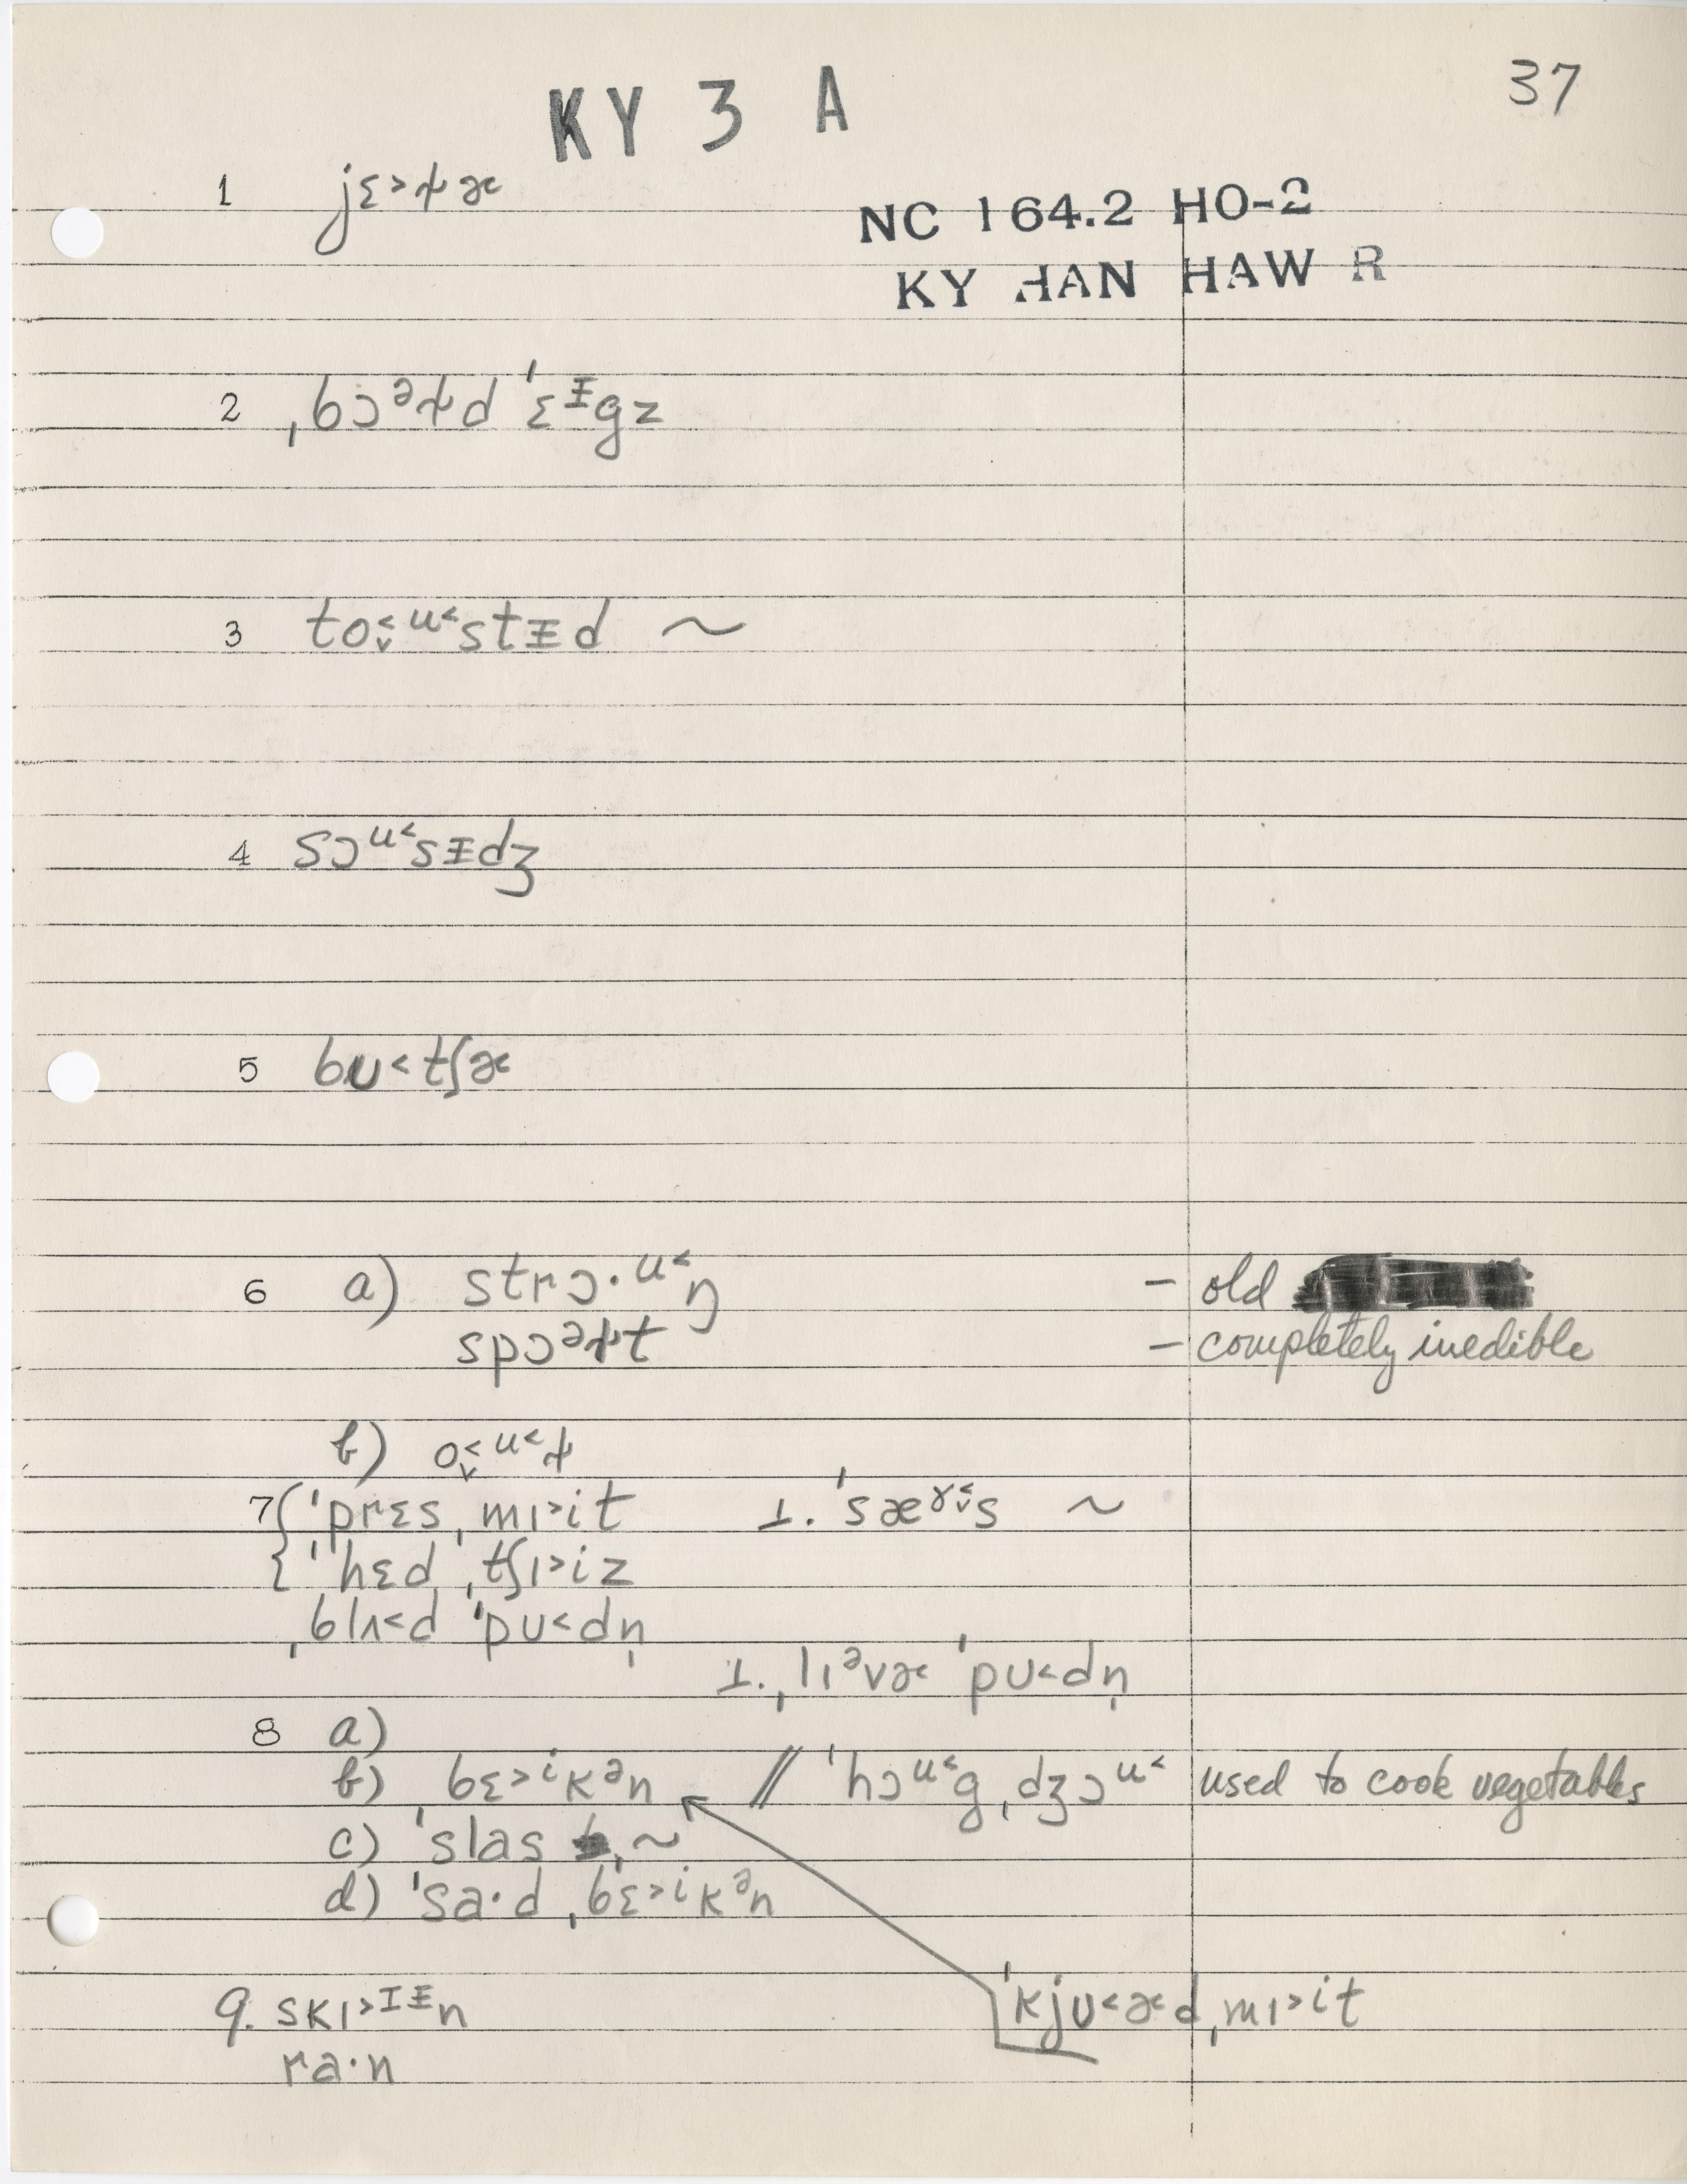 37
KY 3 A
1 jɛ˃ɫɚ
NC 164.2 HO-2
KY HAN HAW R
2 ˌbɔᵊɫd ˈɛᵻgz
3 to̬˂ᵘ˂stᵻd ~
4 sɔᵘ˂sᵻdʒ
5 bʊ˂tʃɚ
6 a) strɔ·ᵘ˂ŋ – old
spɔᵊɫt – completely inedible
b) o̬˂ᵘ˂ɫ
7 ˈprɛsˌmɪ˃it ⊥. ˈsæᵟ̬˂s ~
ˈhɛdˌtʃɪ˃iz
ˌblʌ˂d ˈpʊ˂dn̩
⊥. ˌlɪᵊvɚ ˈpʊ˂dn̩
8 a)
b) bɛ˃ⁱkᵊn // ˈhɔᵘ˂gˌdʒɔᵘ˂ used to cook vegetables
c) ˈslasˌ~
d) ˈsa·dˌbɛ˃ⁱkᵊn
9. skɪ˃ᴵᵻn ˈkjʊ˂ɚdˌmɪ˃it
ra·n